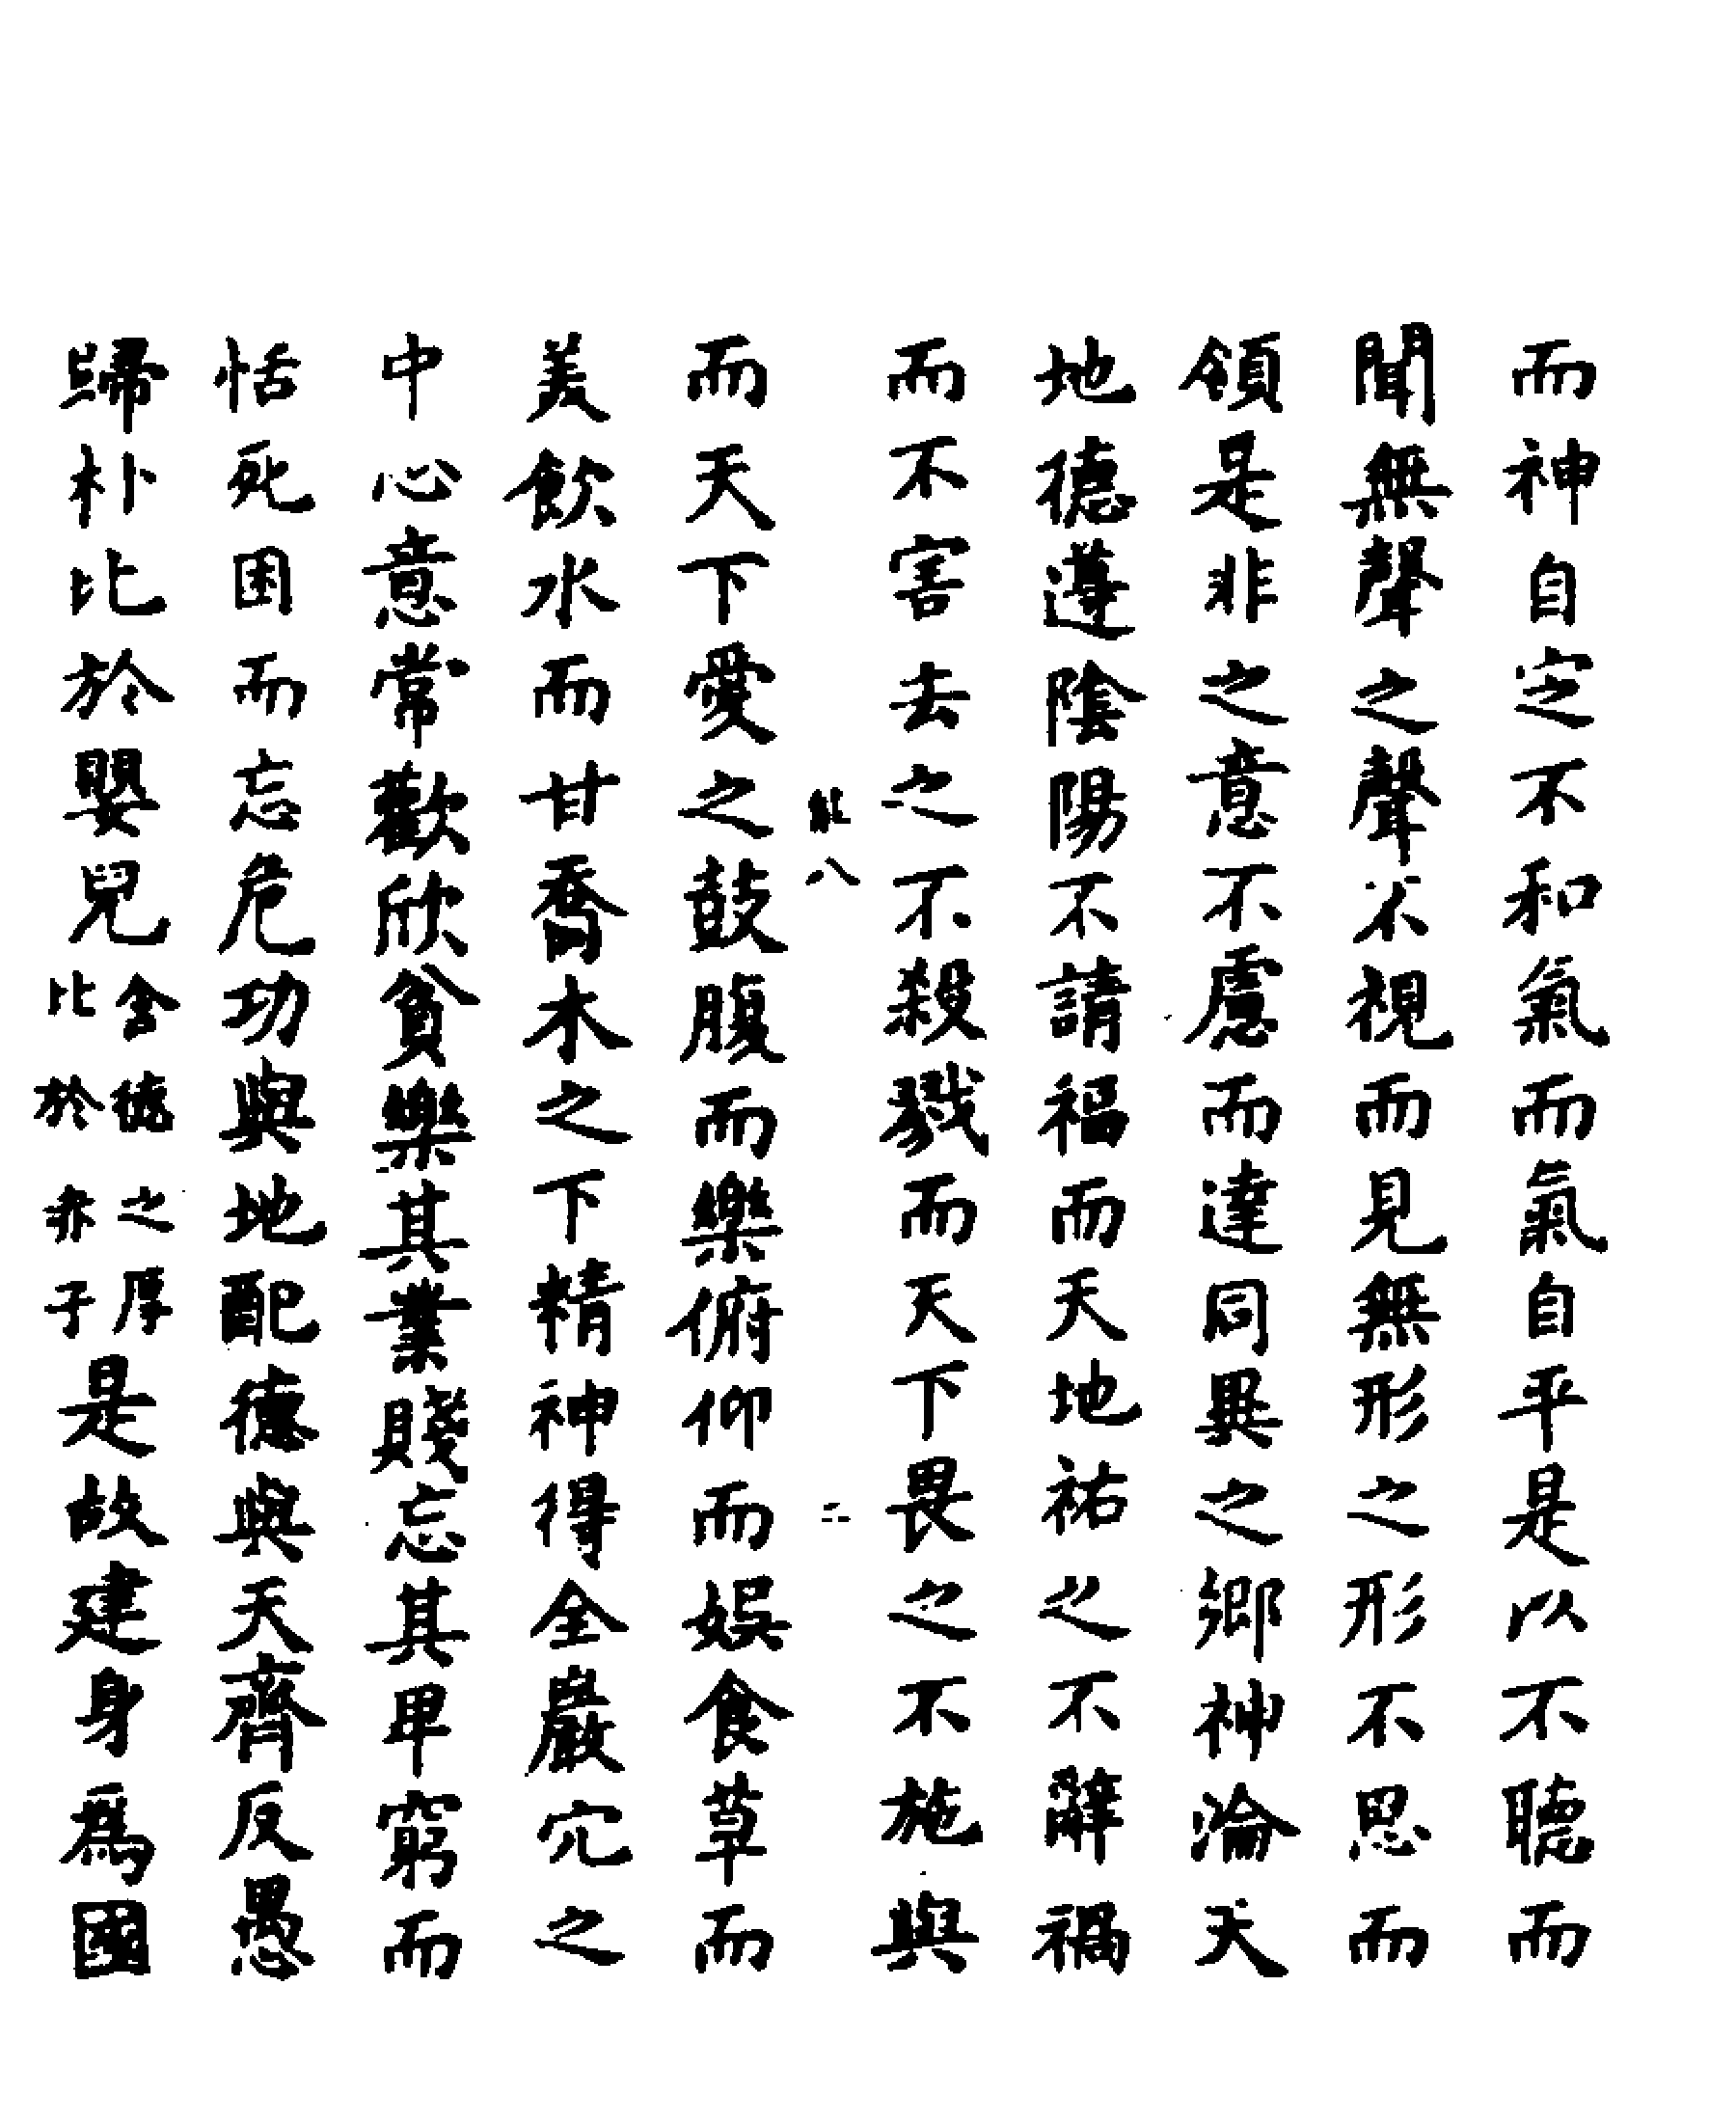 而神自定不和氣而氣自平是以不聽而
聞無聲之聲不視而見無形之形不思而
領是非之意不慮而達同異之鄉神淪天
地德遵陰陽不請福而天地祐之不辭禍
而不害去之不殺戮而天下畏之不施與
能八
二
而天下愛之鼓腹而樂俯仰而娛食草而
美飲水而甘喬木之下精神得全巖穴之
中心意常歡欣貧樂其業賤忘其卑窮而
恬死困而忘危功與地配德與天齊反愚
歸朴比於嬰兒含德之厚比於赤子是故建身爲國